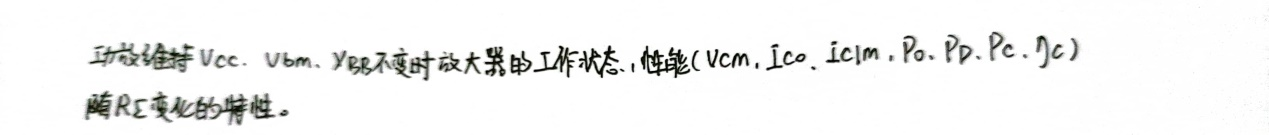 功放维持Vcc、Vbm、VBB不变时放大器的工作状态,性能(Vcm,Ico、ic1m,Po、PD、Pc、ηc)
随RΣ变化的特性。